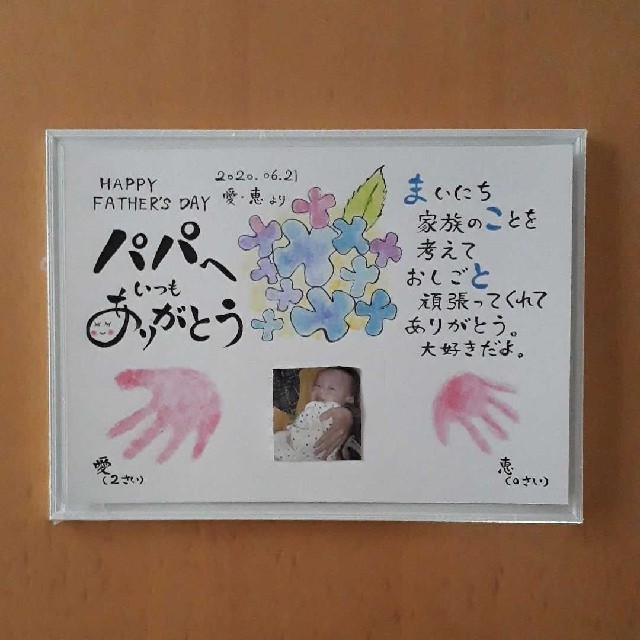 HAPPY
FATHER'S DAY
2020.06.21
愛・恵より
パパへ
いつも
ありがとう
まいにち
家族のことを
考えて
おしごと
頑張ってくれて
ありがとう。
大好きだよ。
愛
(2さい)
恵
(0さい)